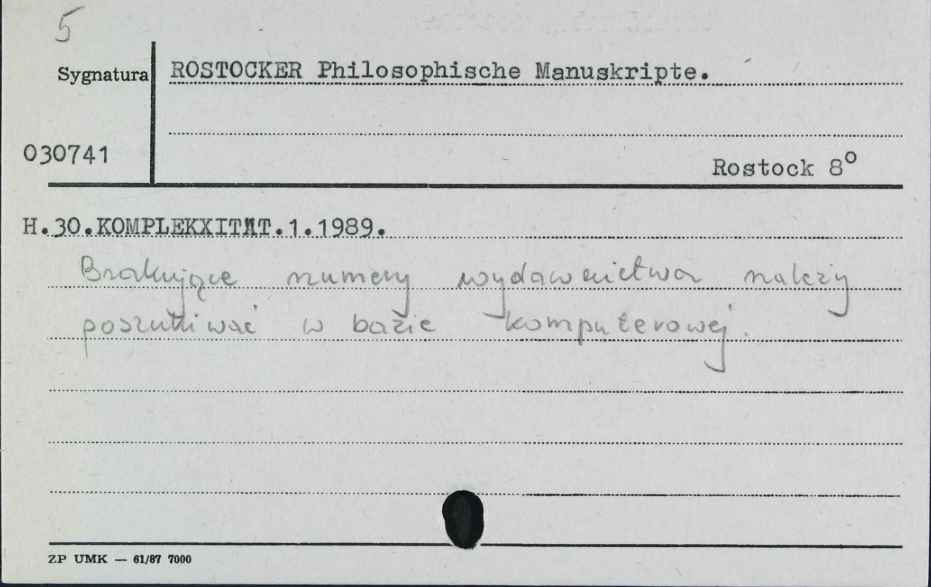 5
Sygnatura
ROSTOCKER Philosophische Manuskripte.
030741
Rostock 8°
H.30.KOMPLEKXITÄT.1.1989.
Brakujące numery wydawnictwa należy
poszukiwać w bazie komputerowej.
ZP UMK — 61/87 7000